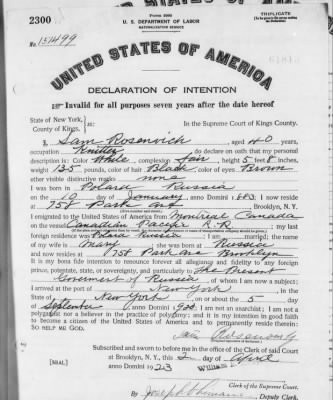 TRIPLICATE
2300
Form 2202
U. S. DEPARTMENT OF LABOR
NATURALIZATION SERVICE
No. 151499
UNITED STATES OF AMERICA
DECLARATION OF INTENTION
Invalid for all purposes seven years after the date hereof
State of New York, ss: In the Supreme Court of Kings County.
County of Kings,
I, Sam Rosenvich, aged 40 years,
occupation Knitter, do declare on oath that my personal
description is: Color White, complexion Fair, height 5 feet 8 inches,
weight 135 pounds, color of hair Black, color of eyes Brown
other visible distinctive marks none
I was born in Poland Russia
on the 10 day of January, anno Domini 1883; I now reside
at 758 Park Ave, Brooklyn, N. Y.
I emigrated to the United States of America from Montreal Canada
on the vessel Canadian Pacific R.R.; my last
foreign residence was Russia; I am married; the name
of my wife is Mary; she was born at Russia
and now resides at 758 Park Ave Brooklyn
It is my bona fide intention to renounce forever all allegiance and fidelity to any foreign
prince, potentate, state, or sovereignty, and particularly to The Present
Government of Russia, of whom I am now a subject;
I arrived at the port of New York, in the
State of New York, on or about the 5 day
of September, anno Domini; I am not an anarchist; I am not a
polygamist nor a believer in the practice of polygamy; and it is my intention in good faith
to become a citizen of the United States of America and to permanently reside therein:
SO HELP ME GOD.
Subscribed and sworn to before me in the office of the Clerk of said Court
at Brooklyn, N. Y., this 2 day of April
[SEAL] anno Domini 1923
Clerk of the Supreme Court.
By Deputy Clerk.